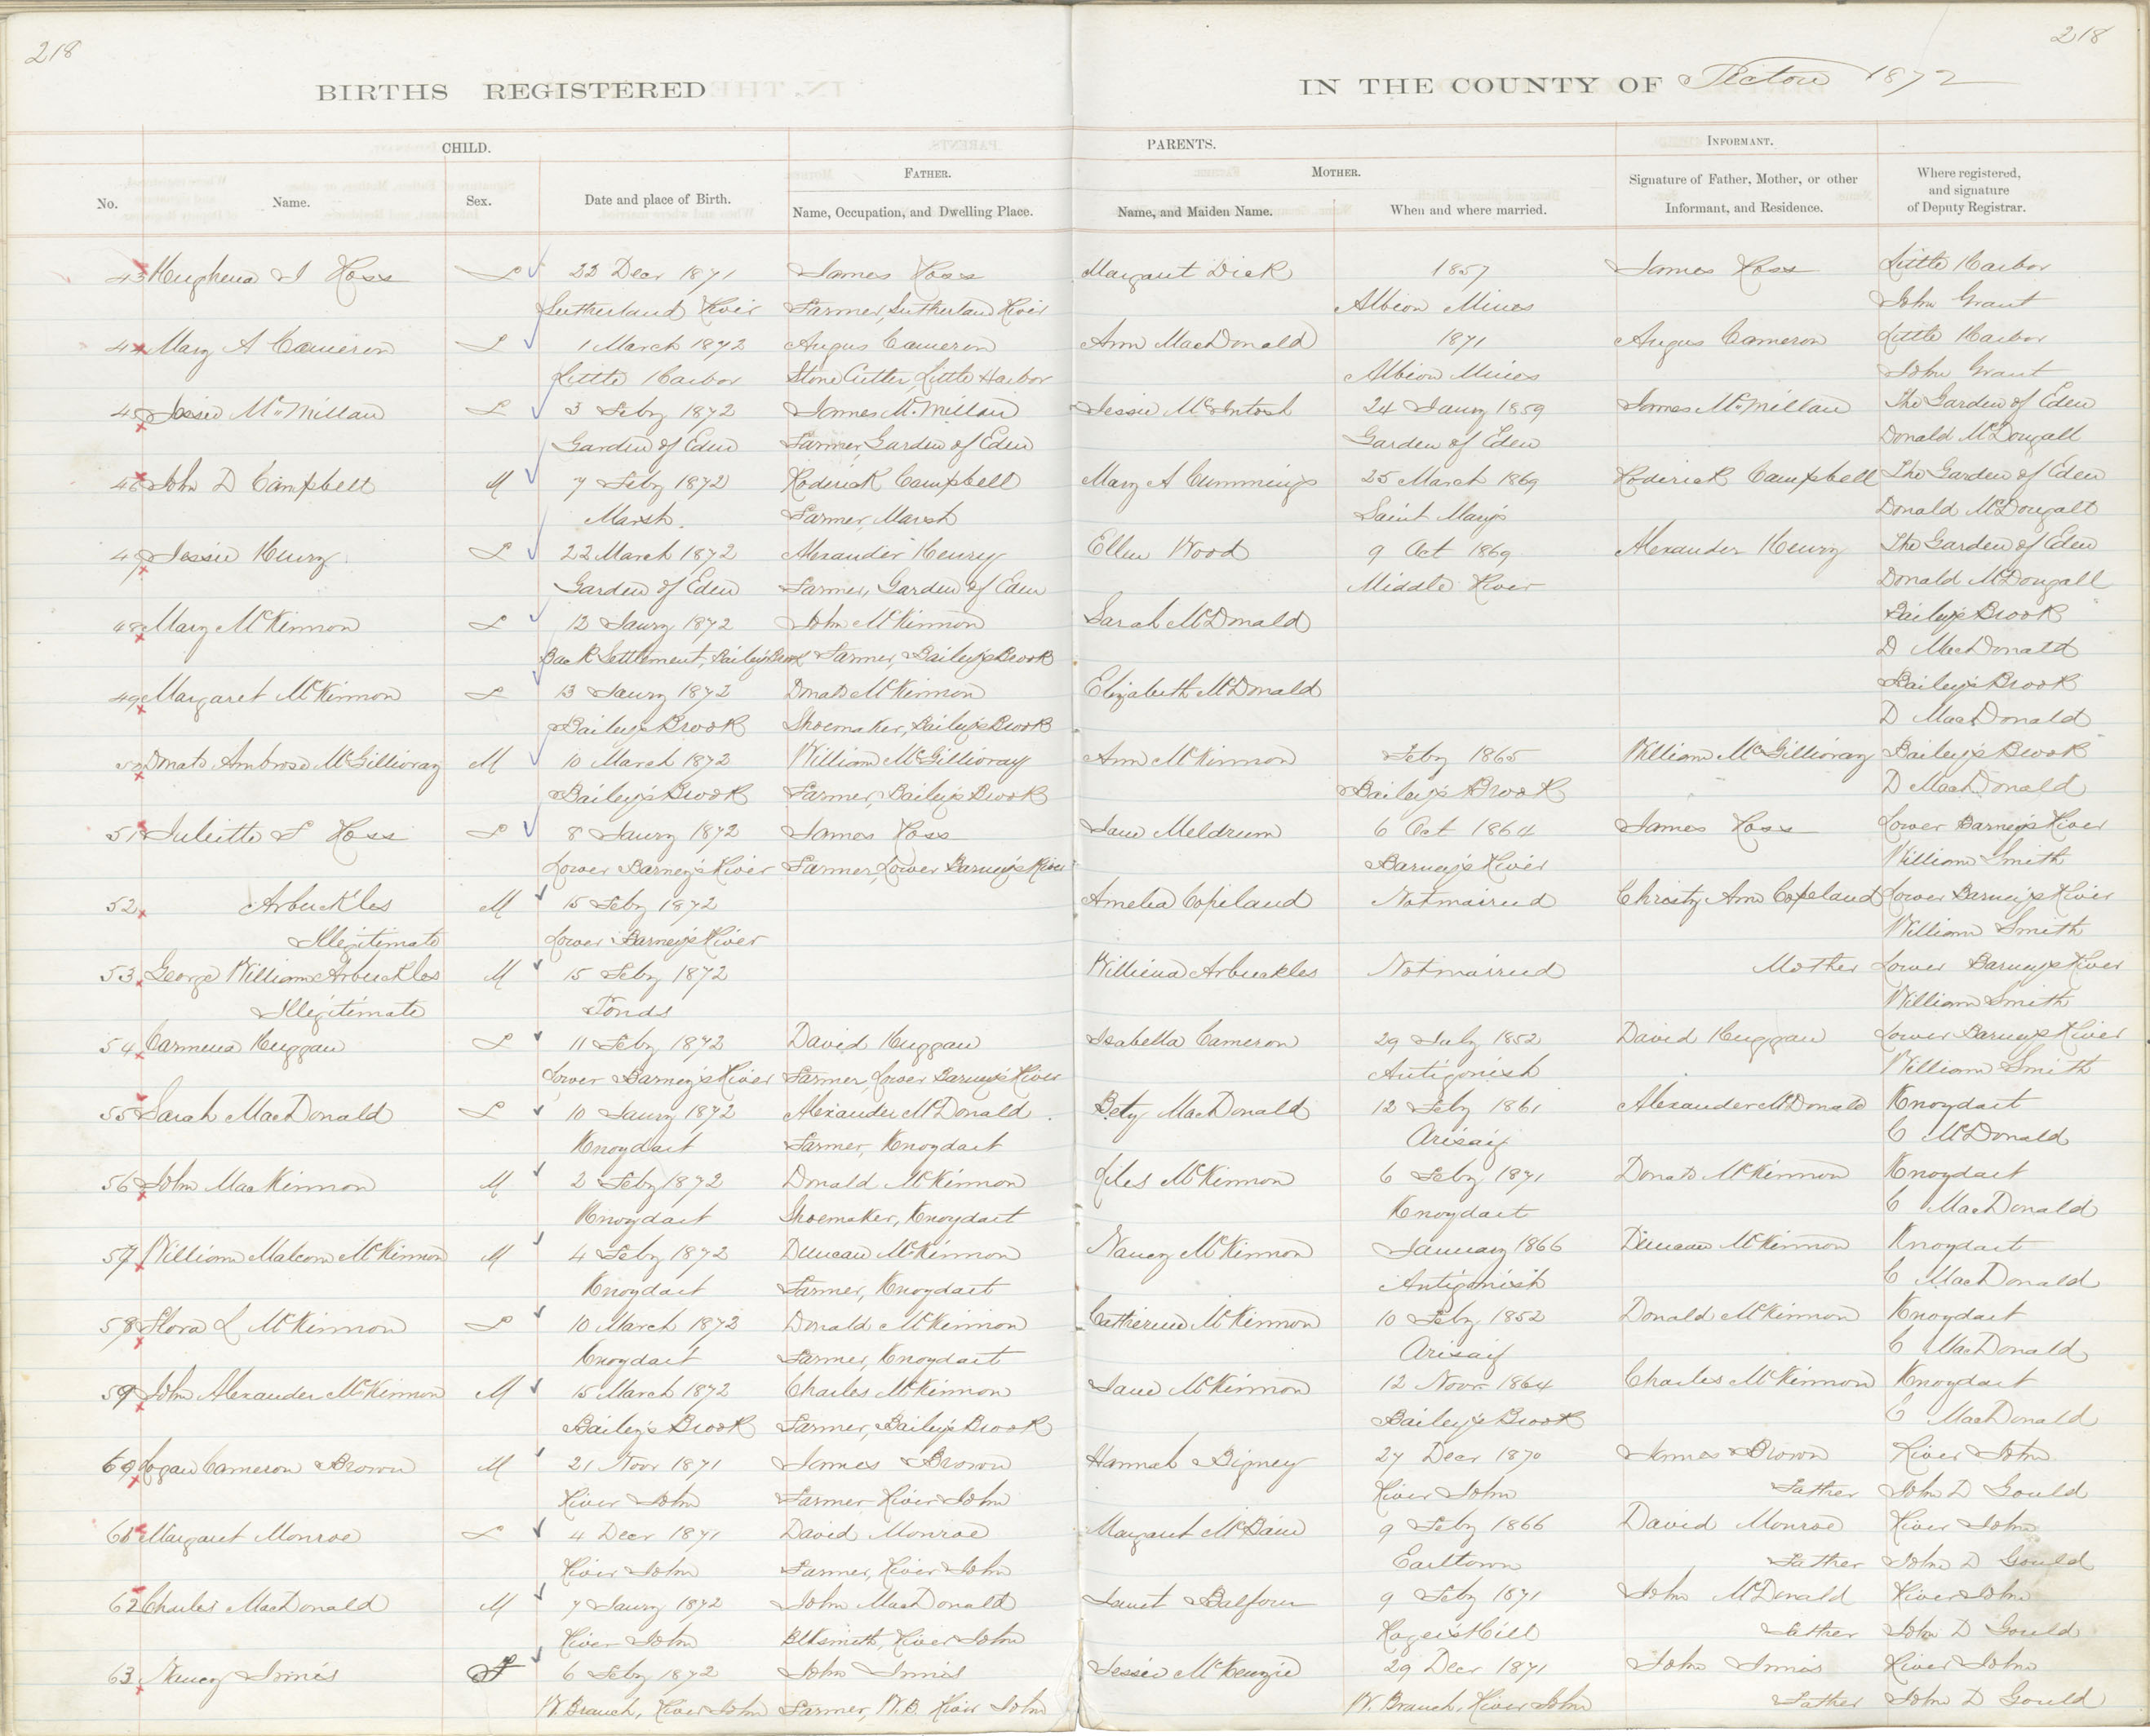 218
218
BIRTHS REGISTERED
IN THE COUNTY OF Pictou 1872
CHILD.
PARENTS.
INFORMANT.
FATHER.
MOTHER.
No.
Name.
Sex.
Date and place of Birth.
Name, Occupation, and Dwelling Place.
Name, and Maiden Name.
When and where married.
Signature of Father, Mother, or other
Informant, and Residence.
Where registered,
and signature
of Deputy Registrar.
43 Hughena J Ross F 22 Decr 1871 James Ross Margaret Dick 1857 James Ross Little Harbor
Sutherland River Farmer, Sutherland River Albion Mines John Grant
44 Mary A Cameron F 1 March 1872 Angus Cameron Ann MacDonald 1871 Angus Cameron Little Harbor
Little Harbor Stone Cutter, Little Harbor Albion Mines John Grant
45 Jessie McMillan F 3 Feby 1872 James McMillan Jessie McIntosh 24 Jauny 1859 James McMillan The Garden of Eden
Garden of Eden Farmer, Garden of Eden Garden of Eden Donald McDougall
46 John D Campbell M 7 Feby 1872 Roderick Campbell Mary A Cummings 25 March 1869 Roderick Campbell The Garden of Eden
Marsh. Farmer, Marsh Saint Mary's Donald McDougall
47 Jessie Henry F 22 March 1872 Alexander Henry Ellen Wood 9 Oct 1869 Alexander Henry The Garden of Eden
Garden of Eden Farmer, Garden of Eden Middle River Donald McDougall
48 Mary McKinnon F 12 Jauny 1872 John McKinnon Sarah McDonald Bailey's Brook
Back Settlement, Bailey's Brook Farmer, Bailey's Brook D MacDonald
49 Margaret McKinnon F 13 Jauny 1872 Donald McKinnon Elizabeth McDonald Bailey's Brook
Bailey's Brook Shoemaker, Bailey's Brook D MacDonald
50 Donald Ambrose McGillivray M 10 March 1872 William McGillivray Ann McKinnon Feby 1865 William McGillivray Bailey's Brook
Bailey's Brook Farmer, Bailey's Brook Bailey's Brook D MacDonald
51 Juliette F Ross F 8 Jauny 1872 James Ross Jane Meldrum 6 Oct 1864 James Ross Lower Barney's River
Lower Barney's River Farmer, Lower Barney's River Barney's River William Smith
52 Arbuckles M 15 Feby 1872 Amelia Copeland Not mairied Christy Ann Copeland Lower Barney's River
Illegitimate Lower Barney's River William Smith
53 George William Arbuckles M 15 Feby 1872 Williena Arbuckles Not mairied Mother Lower Barney's River
Illegitimate Ponds William Smith
54 Carmena Huggan F 11 Feby 1872 David Huggan Isabella Cameron 29 July 1852 David Huggan Lower Barney's River
Lower Barney's River Farmer, Lower Barney's River Antigonish William Smith
55 Sarah MacDonald F 10 Jauny 1872 Alexander McDonald Bety MacDonald 12 Feby 1861 Alexander McDonald Knoydart
Knoydart Farmer, Knoydart Arisaig C McDonald
56 John MacKinnon M 2 Feby 1872 Donald McKinnon Liles McKinnon 6 Feby 1871 Donald McKinnon Knoydart
Knoydart Shoemaker, Knoydart Knoydart C MacDonald
57 William Malcom McKinnon M 4 Feby 1872 Duncan McKinnon Nancy McKinnon January 1866 Duncan McKinnon Knoydart
Knoydart Farmer, Knoydart Antigonish C MacDonald
58 Flora L McKinnon F 10 March 1872 Donald McKinnon Catherine McKinnon 10 Feby 1852 Donald McKinnon Knoydart
Knoydart Farmer, Knoydart Arisaig C MacDonald
59 John Alexander McKinnon M 15 March 1872 Charles McKinnon Jane McKinnon 12 Novr 1864 Charles McKinnon Knoydart
Bailey's Brook Farmer, Bailey's Brook Bailey's Brook C MacDonald
60 Logan Cameron Brown M 21 Novr 1871 James Brown Hannah Bigney 27 Decr 1870 James Brown River John
River John Farmer River John River John Father John D Gould
61 Margaret Monroe F 4 Decr 1871 David Monroe Margaret McBain 9 Feby 1866 David Monroe River John
River John Farmer, River John Earltown Father John D Gould
62 Charles MacDonald M 7 Jauny 1872 John MacDonald Janet Balfour 9 Feby 1871 John McDonald River John
River John Blksmith, River John Roger's Hill Father John D Gould
63 Nancy Innis F 6 Feby 1872 John Innis Jessie McKenzie 29 Decr 1871 John Innis River John
W. Branch, River John Farmer, W.B. River John W. Branch, River John Father John D Gould